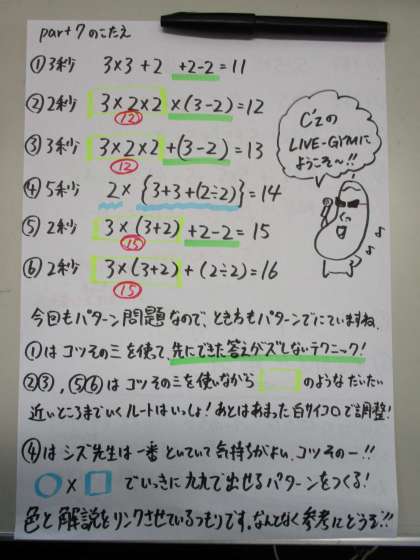 part7のこたえ
①3秒 3×3+2 +2-2=11
②2秒 3×2×2 ×(3-2)=12
12
③3秒 3×2×2 +(3-2)=13
12
④5秒 2×{3+3+(2÷2)}=14
⑤2秒 3×(3+2) +2-2=15
15
⑥2秒 3×(3+2)+(2÷2)=16
15
C'zの
LIVE-GYMに
ようこそ〜!!
今回もパターン問題なので、とき方もパターンでにていますね。
①はコツその三を使って、先にできた答えがズレないテクニック!
②③,⑤⑥はコツその三を使いながら のようなだいたい
近いところまでいくルートはいっしょ!あとはあまった白サイコロで調整!
④はシズ先生は一番といていて気持ちがよい、コツその一!!
○×□でいっきに九九で出せるパターンをつくる!
色と解説をリンクさせているつもりです。なんとなく参考にどうぞ!!